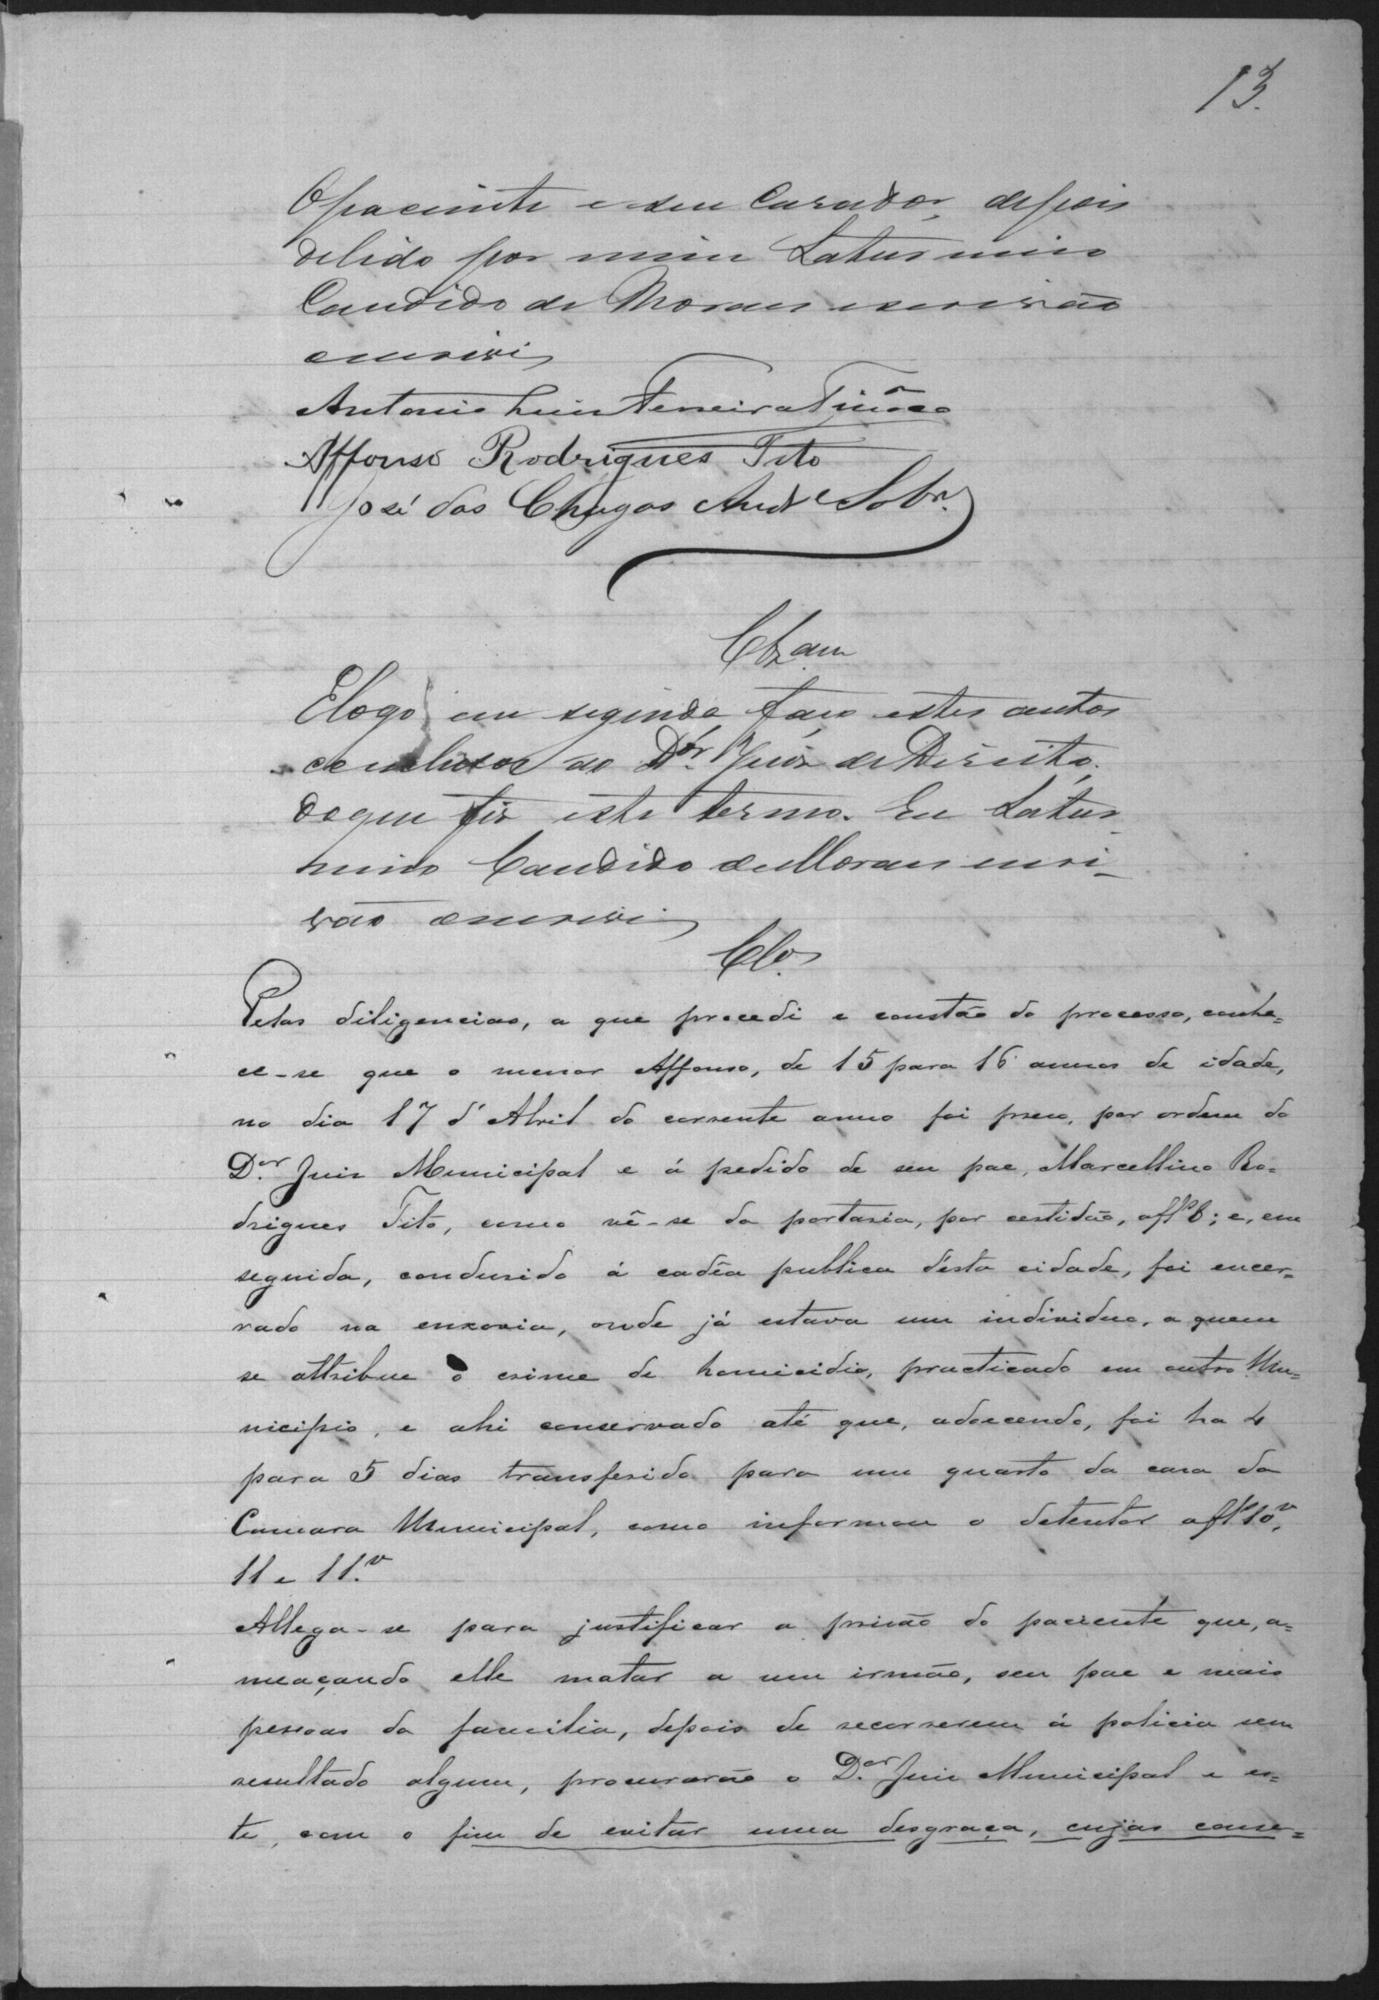 13.
O paciente e seu Curador, depois
de lido por mim Saturnino
Candido de Moraes escrivão
escrevi
Antonio Luiz Ferreira Tinôco
Affonso Rodrigues Tito
José das Chagas Andr.e Sobr.
Clzam
E logo em seguida faço estes autos
conclusos ao Dr. Juiz de Direito,
do que fiz este termo. Eu Satur
nino Candido de Moraes escri-
vão escrevi
Clos
Pelas diligencias, a que procedi e constão do processo, conhe=
ce-se que o menor Affonso, de 15 para 16 annos de idade,
no dia 17 d'Abril do corrente anno foi preso, por ordem do
D.or Juiz Municipal e á pedido de seu pae, Marcellino Ro=
drigues Tito, como vê-se da portaria, por certidão, a fl 6; e, em
seguida, condusido á cadêa publica d'esta cidade, foi encer=
rado na enxovia, onde já estava um individuo, a quem
se attribue o crime de homicidio, practicado em outro Mu=
nicipio, e ahi conservado até que, adoecendo, foi ha 4
para 5 dias transferido para um quarto da casa da
Camara Municipal, como informou o detentor a fl 10v,
11 e 11.v
Allega-se para justificar a prisão do paciente que, a=
meaçando elle matar a um irmão, seu pae e mais
pessoas da familia, depois de recorrerem á policia sem
resultado algum, procurarão o D.or Juiz Municipal e es=
te, com o fim de evitar uma desgraça, cujas conse=